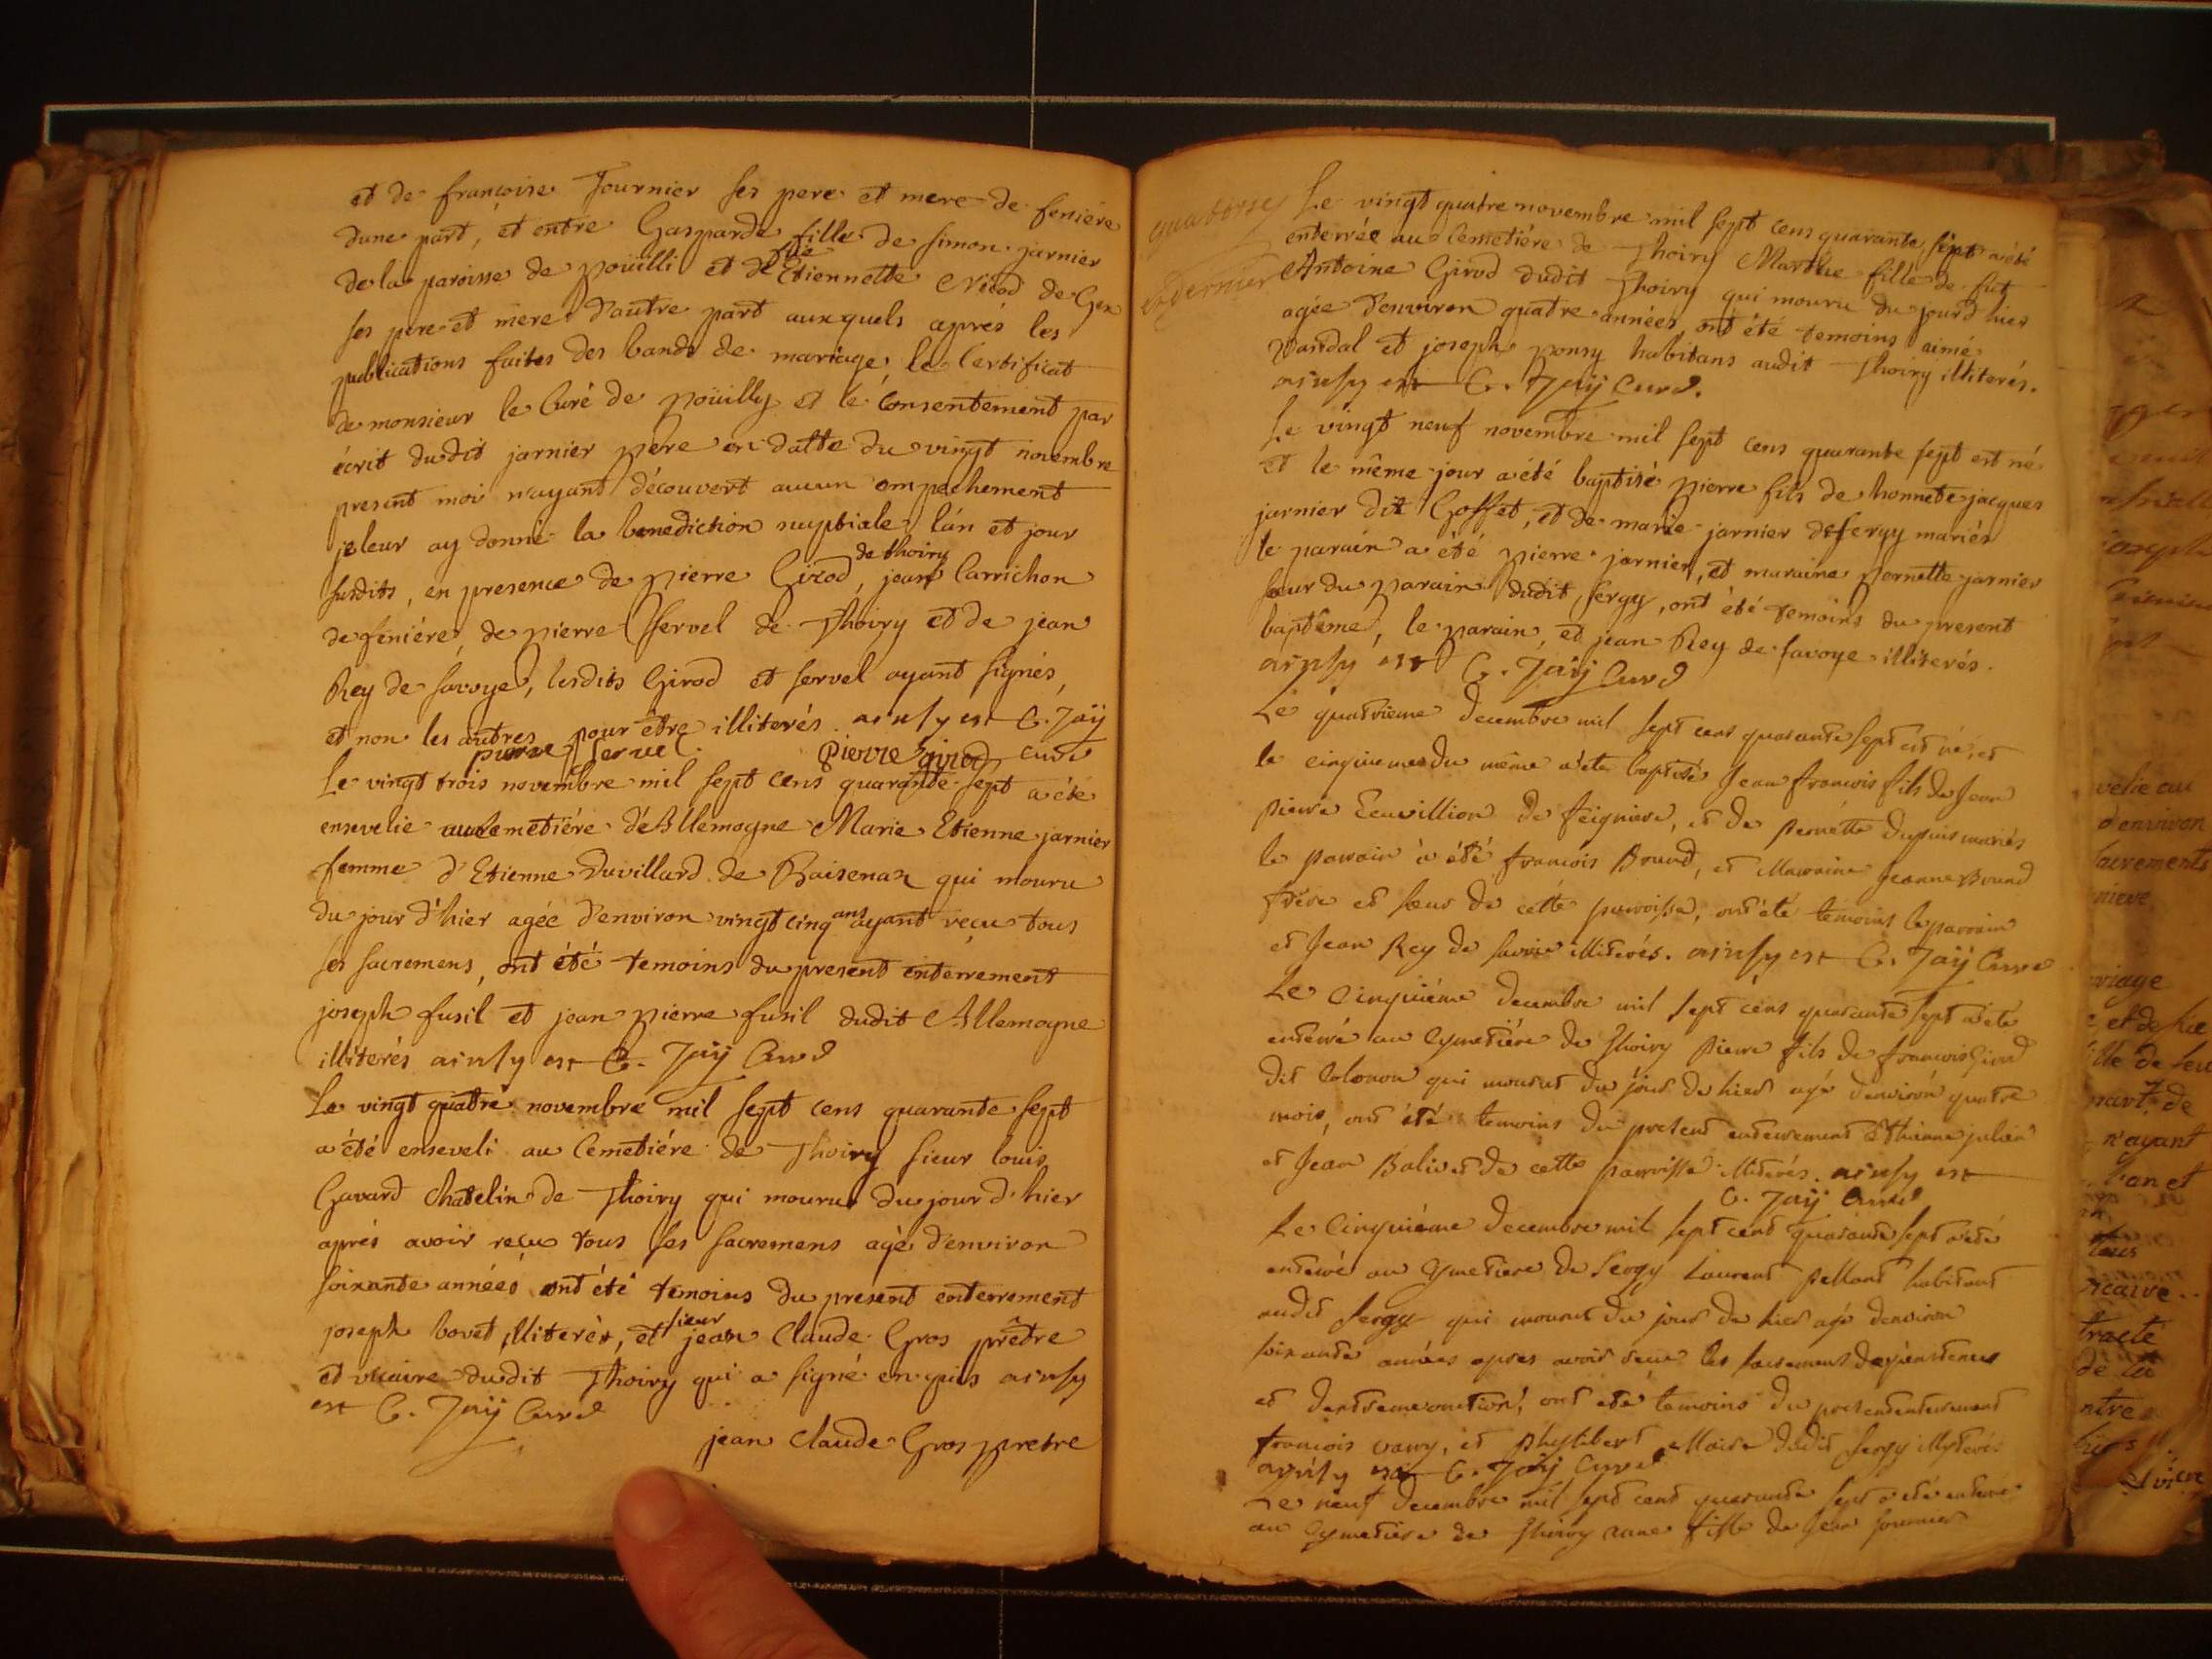 et de françoise Fournier ses pere et mere de feniére
dune part, et entre Gasparde fille de simon jarnier
de la paroisse de poüilli et de feüe Etiennette Nicod de Gex
ses pere et mere d'autre part auxquels aprés les
publications faites des bands de mariage, le Certificat
de monsieur le Curé de poüilly et le consentement par
écrit dudit jarnier pere en datte du vingt novembre
present mois n'ayant découvert aucun empechement
je leur ay donné la benediction nuptiale lán et jour
susdits, en presence de pierre Girod de thoiry, jean Carrichon
de feniére, de pierre Servel de Thoiry et de jean
Rey de savoye, lesdits Girod et servel ayant signés,
et non les autres pour être illiterés. ainsy est C. Jaÿ
pierre servel Pierre girod curé
Le vingt trois novembre mil sept cens quarante sept a été
ensevelie au cemetiére d'Allemogne Marie Etienne jarnier
femme d'Etienne Duvillard de Baisenaz qui mouru
du jour d'hier agée d'environ vingt cinq ans ayant reçu tous
ses sacremens, ont été temoins du present enterrement
joseph fusil et jean pierre fusil dudit Allemogne
illiterés ainsy est C. Jaÿ Curé
Le vingt quatre novembre mil sept cens quarante sept
a été enseveli au Cemetiére de Thoiry sieur louis
Gavard Chatelin de Thoiry qui mourut du jour d'hier
aprés avoir reçu tous ses sacremens agé d'environ
soixante années ont été temoins du present enterrement
joseph bovet illiterés, et sieur jean Claude Gros prêtre
et vicaire dudit Thoiry qui a signé enquis ainsy
est C. Jaÿ Curé
jean claude Gros pretre
quatorse
et dernier
Le vingt quatre novembre mil sept cens quarante sept a été
enterrée au Cemetiére de Thoiry Marthe fille de fut
Antoine Girod dudit Thoiry qui mouru du jourd hier
agée d'environ quatre années, ont été temoins aimé
pandal et joseph ponsy habitans audit Thoiry illiterés.
ainsy est C. Jaÿ Curé.
Le vingt neuf novembre mil sept cens quarante sept est né
et le même jour a été baptisé pierre fils de honnete jacques
jarnier dit Gosset, et de marie jarnier de sergy mariés
le parain a été pierre jarnier, et maraine pernette jarnier
soeur du parain dudit Sergy, ont été temoins du present
baptême, le parain, et jean Rey de savoye illiterés.
ainsy est C. Jaÿ Curé
Le quatrieme decembre mil sept cens quarante sept est né, et
le cinquiemes du même a été baptisé Jean francois fils de Jean
pierre de feigniere, et de pernette dupuis mariés
le parrain a été francois Brund, et Marraine Jeanne Brund
frere et soeur de cette parroisse, ont été temoins le parrain
et Jean Rey de savoie illiterés. ainsy est C. Jaÿ Curé
Le Cinquiéme decembre mil sept cens quarante sept a été
enterré au Cymetiére de Thoiry pierre fils de francois Girod
dit Colonon qui mourut du jour de hier agé denviron quatre
mois, ont été temoins du present enterrement Ethienne julien
et Jean Balivet de cette parroisse illiterés. ainsy est
C. Jaÿ Curé
Le Cinquiéme decembre mil sept cent quarante sept a été
enterré au Cymetiere de Sergy Laurent pellant habitant
audit Sergy qui mourut du jour de hier agé denviron
soixante années apres avoir receu les sacrement de penitence
et dextreme onction, ont eté temoins du present enterrement
francois vary, et phylibert dudit Sergy illyterés
ainsy est C. Jaÿ Curé
Le neuf decembre mil sept cent quarante sept a eté enterré
au Cymetiere de Thoiry anne fille de Jean fournier